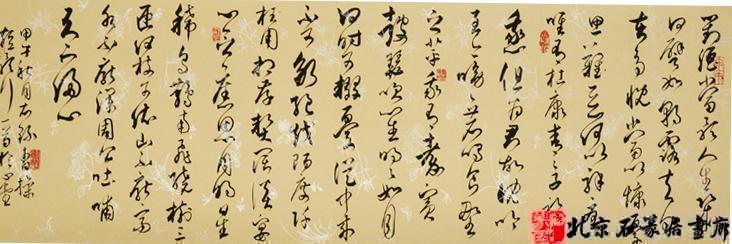 對酒當歌人生幾
何譬如朝露去日
苦多慨當以慷
思難忘何以解憂
唯有杜康青青子衿
悠悠我心但爲君故沈吟
至今呦呦鹿鳴食野
之苹我有嘉賓
鼓瑟吹笙明明如月
何時可掇憂從中來
不可斷絶越陌度阡
枉用相存契闊談宴
心念舊恩月明星
稀烏鵲南飛繞樹三
匝何枝可依山不厭高
水不厭深周公吐哺
天下歸心
甲午秋月右録曹操
短歌行一首於
北京硕篆居畫廊